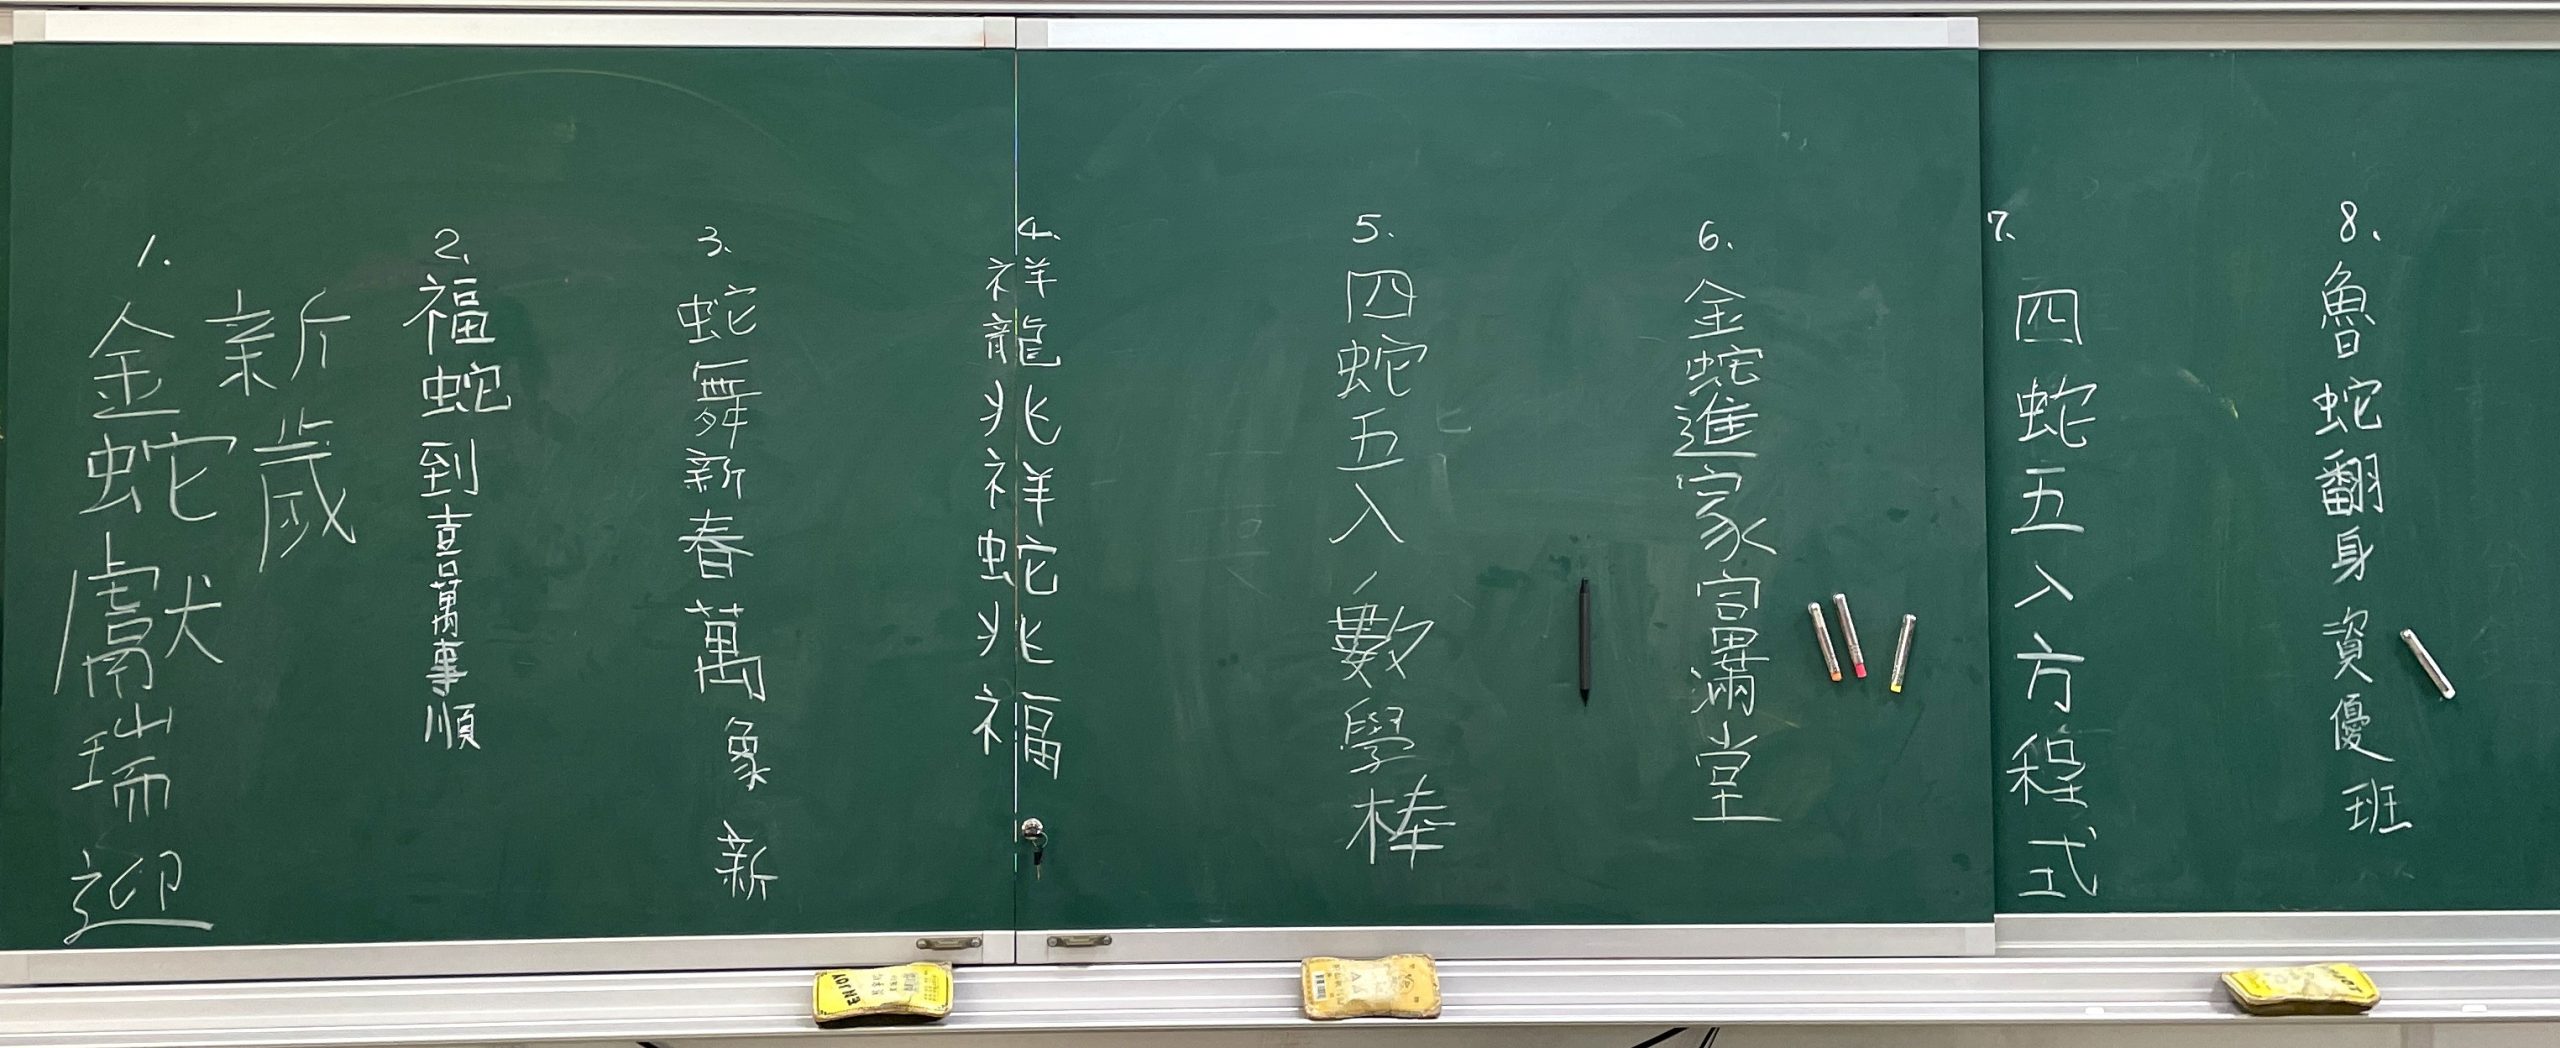 1.
金蛇獻瑞迎
新歲
2.
福蛇到喜萬事順
3.
蛇舞新春萬象新
4.
祥龍兆祥蛇兆福
5.
四蛇五入數學棒
6.
金蛇進家富滿堂
7.
四蛇五入方程式
8.
魯蛇翻身資優班
ENJOY